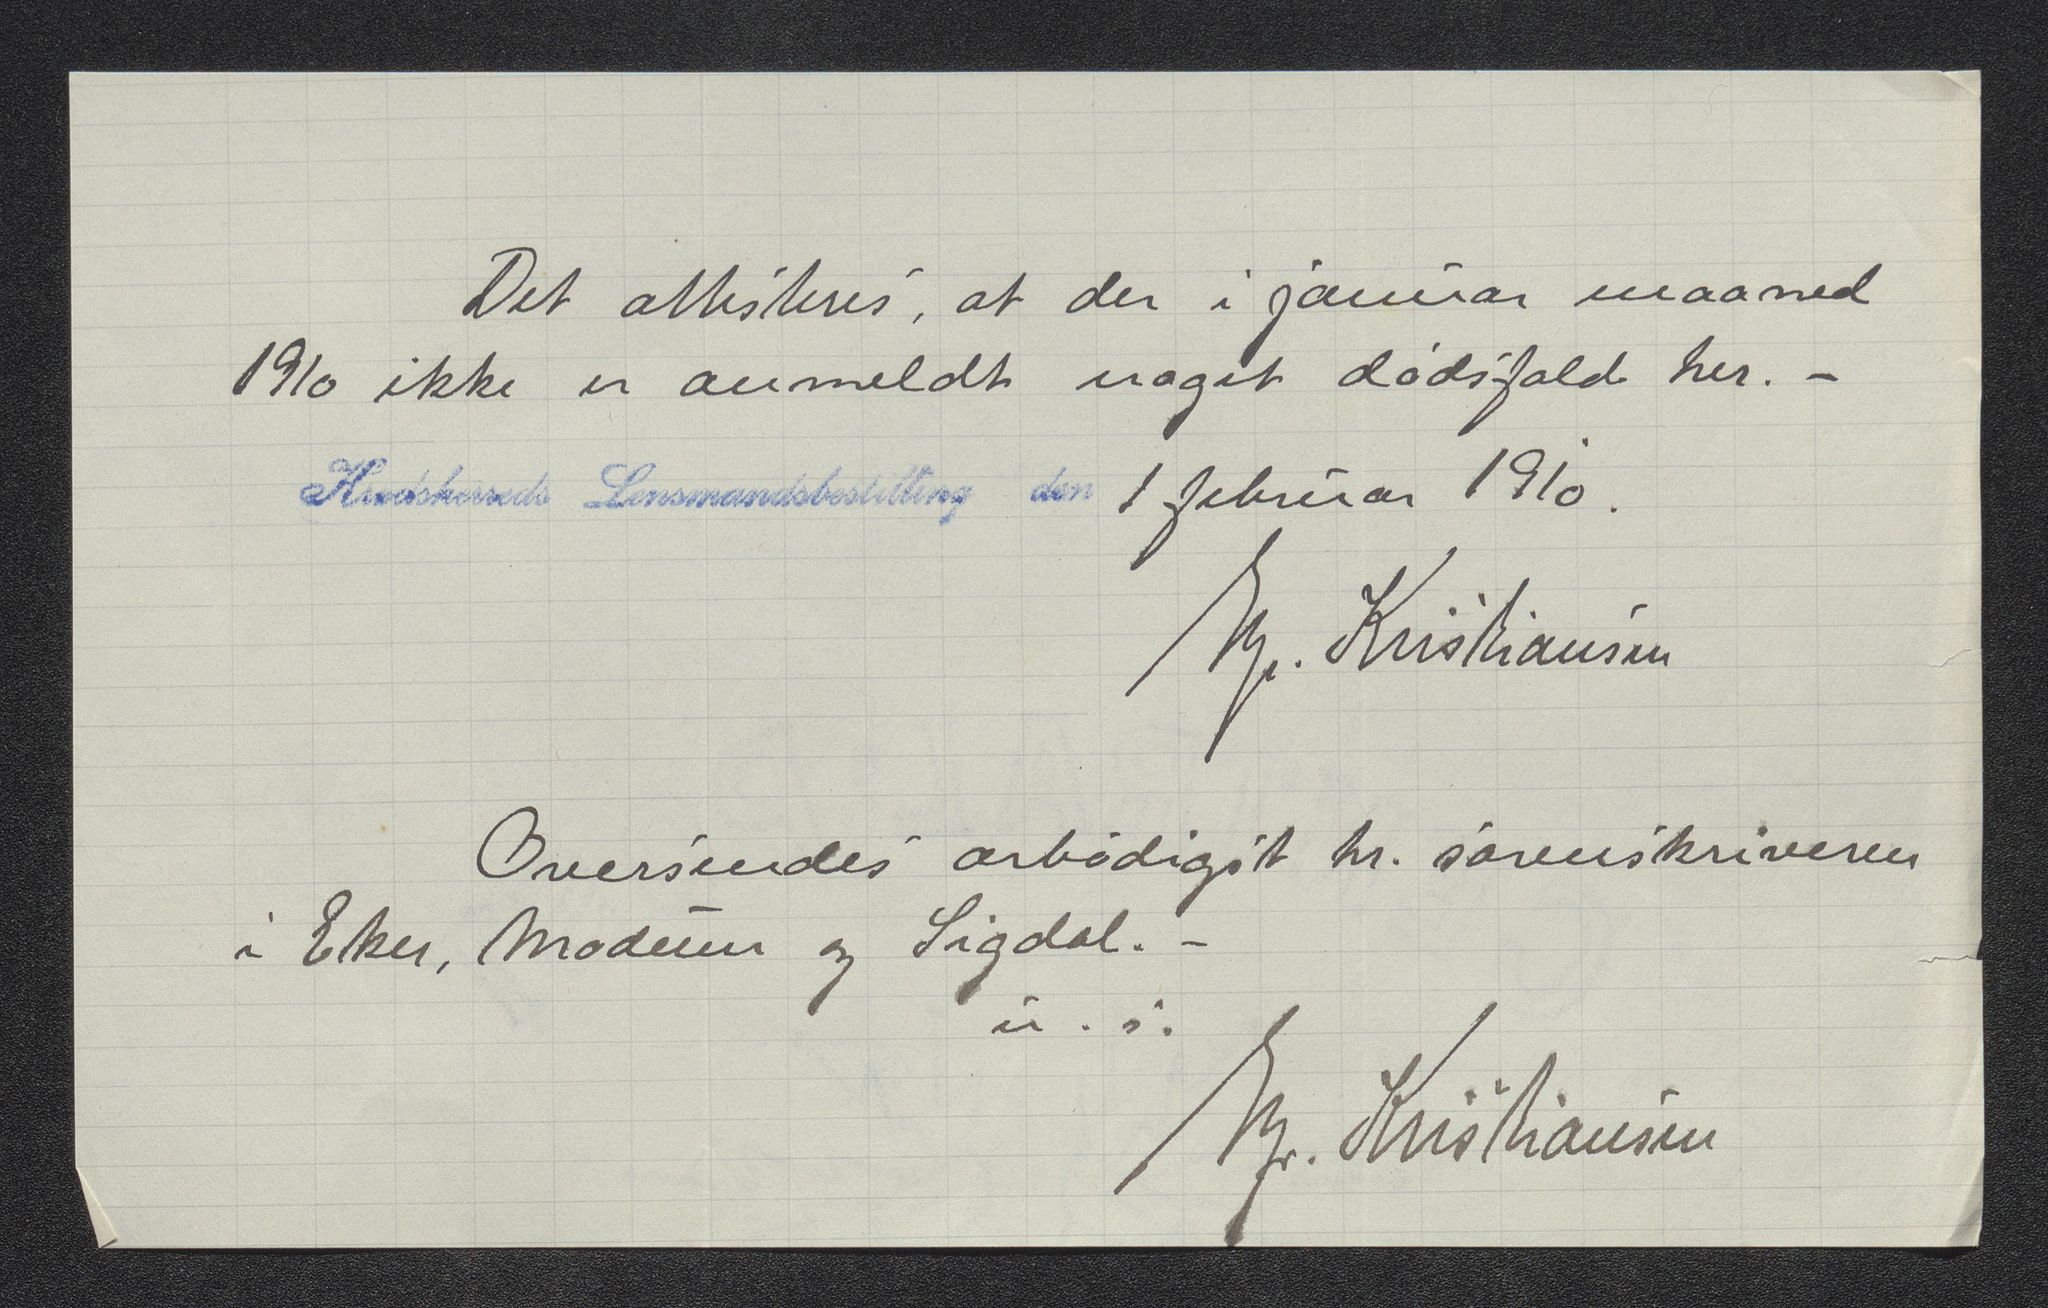 Det attesteres, at der i januar maaned
1910 ikke er anmeldt noget dødsfald her. –
Lensmandsbestilling den 1 februar 1910.
Kristiansen
Oversendes ærbødigst hr. sorenskriveren
i Eker, Modum og Sigdal. –
u. s.
Kristiansen